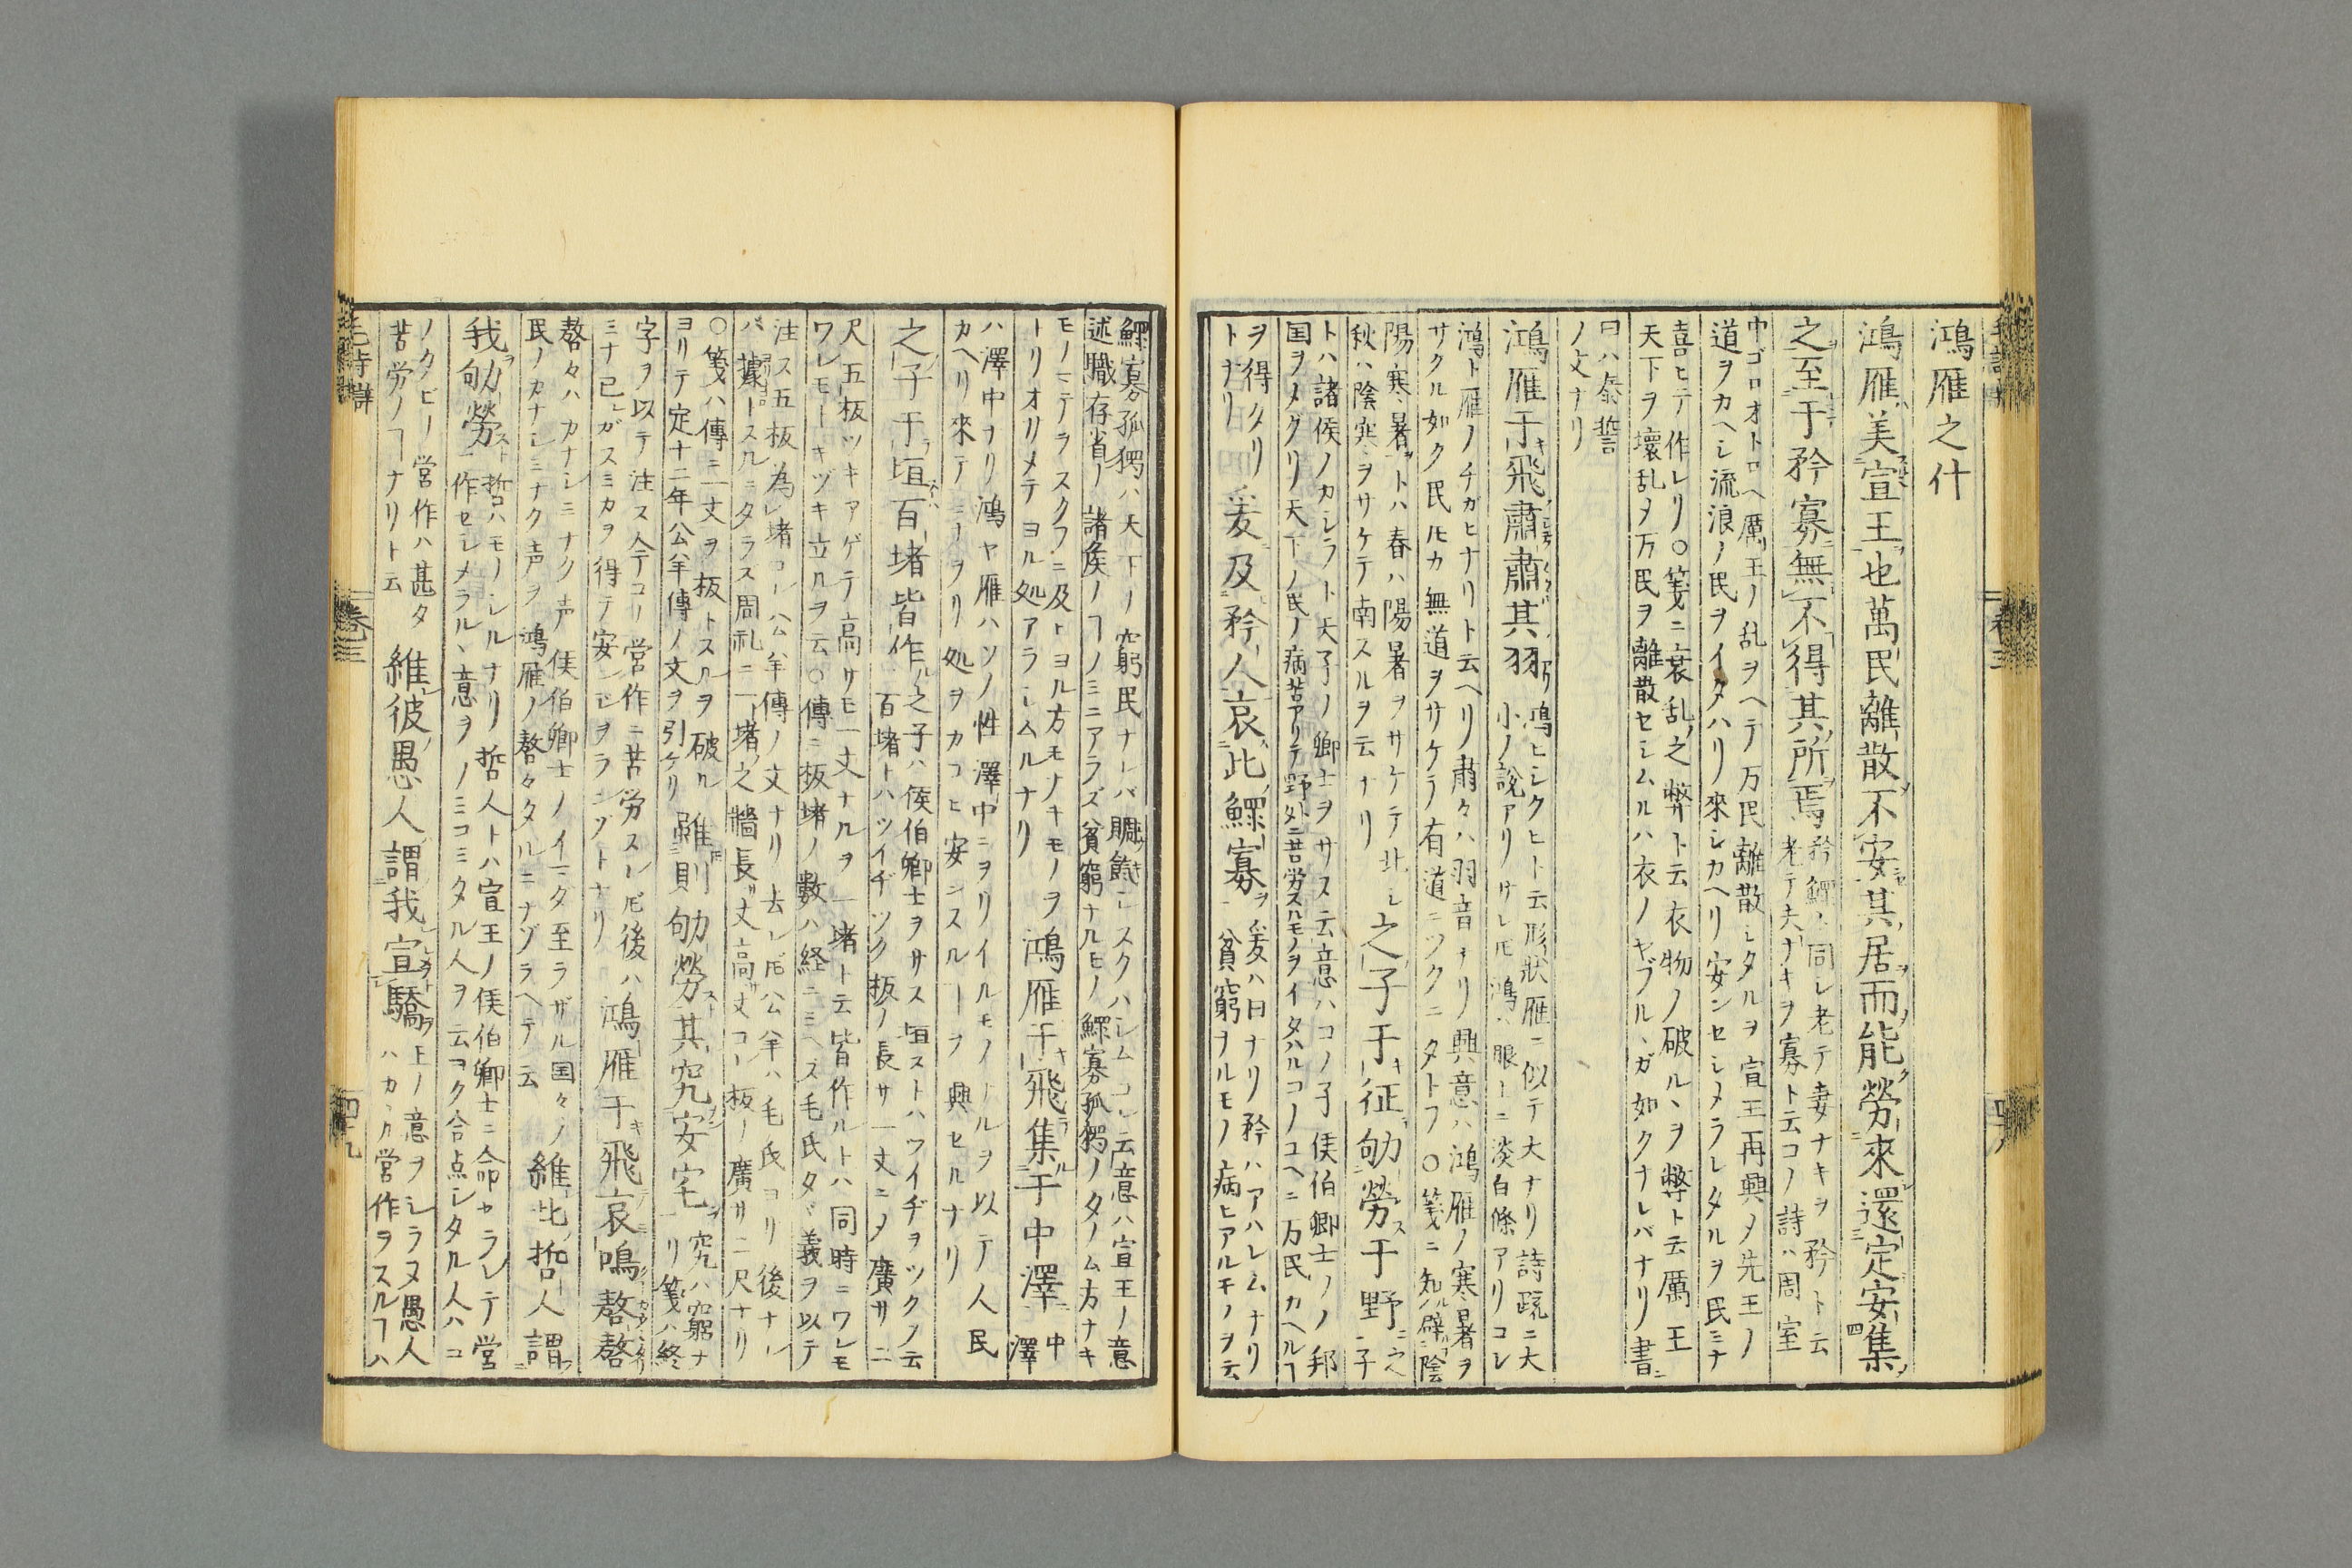 鴻雁之什
鴻雁美宣王也萬民離散不安其居而能勞來還定安集
之至于矜寡無不得其所焉
矜鰥ト同シ老テ妻ナキヲ矜ト云
老テ夫ナキヲ寡ト云コノ詩ハ周室
中ゴロオトロヘ厲王ノ乱ヲヘテ万民離散シタルヲ宣王再興メ先王ノ
道ヲカヘシ流浪ノ民ヲイタハリ來シカヘリ安ンセシメラレタルヲ民ミナ
喜ヒテ作レリ○箋ニ衰乱之弊ト云衣物ノ破ルヽヲ弊ト云厲王
天下ヲ壞乱メ万民ヲ離散セシムルハ衣ノヤブルヽガ如クナレバナリ書ニ
曰ハ泰誓
ノ文ナリ
鴻雁于飛肅肅其羽
鴻ヒシクヒト云形狀雁ニ似テ大ナリ詩疏ニ大
小ノ說アリサレ𪜈鴻ハ眼上ニ淡白條アリコレ
鴻ト雁ノチガヒナリト云ヘリ肅々ハ羽音ナリ興意ハ鴻雁ノ寒暑ヲ
サクル如ク民𪜈カ無道ヲサケテ有道ニツクニタトフ○箋ニ知辟陰
陽寒暑トハ春ハ陽暑ヲサケテ北シ
秋ハ陰寒ヲサケテ南スルヲ云ナリ
之子于征劬勞于野
トハ諸侯ノカシラト天子ノ卿士ヲサス云意ハコノ子侯伯卿士ノノ邦
国ヲメグリ天下ノ民ノ病苦アリテ野外ニ苦労スルモノヲイタハルコノユヘニ万民カヘルヿ
ヲ得タリ
トナリ
爰及矜人哀此鰥寡
爰ハ曰ナリ矜ハアハレムナリ
貧窮ナルモノ病ヒアルモノヲ云
鰥寡孤獨ハ天下ノ窮民ナレバ賙餼シスクハシムコレ云意ハ宣王ノ意
述職存省ノ諸侯ノヿノミニアラズ貧窮ナルモノ鰥寡孤獨ノタノム方ナキ
モノマテヲスクフニ及トヨル方モナキモノヲ
トリオリメテヨル処アラシムルナリ
鴻雁于飛集于中澤
中
澤
ハ澤中ナリ鴻ヤ雁ハソノ性澤中ニヲリイルモノナルヲ以テ人民
カヘリ來テミナヲリ処ヲカコヒ安ンスルヿヲ興セルナリ
之子于垣百堵皆作
之子ハ侯伯卿士ヲサス垣ストハツイヂヲツクノ云
百堵トハツイヂツク板ノ長サ一丈ニメ廣サ二
尺五板ツキアゲテ高サモ一丈ナルヲ一堵ト云皆作ルトハ同時ニワレモ
ワレモトキヅキ立ルヲ云○傳ニ板堵ノ數ハ経ニミヘス毛氏タヾ義ヲ以テ
注ス五板為堵コレハ公羊傳ノ文ナリ去レ𪜈公羊ハ毛氏ヨリ後ナレ
バ據トスルニタラズ周礼ニ一堵之牆長丈高丈コレ板ノ廣サ二尺ナリ
○箋ハ傳ニ一丈ヲ板トスルヲ破ル
ヨリテ定十二年公羊傳ノ文ヲ引ケリ
雖則劬勞其究安宅
究ハ窮ナ
リ箋ハ終
字ヲ以テ注ス今コヽ営作ニ苦労スレ𪜈後ハ
ミナ已ガスミカヲ得テ安ンヒヲランゾトナリ
鴻雁于飛哀鳴嗸嗸
嗸々ハカナシミナク声侯伯卿士ノイマタ至ラザル国々ノ
民ノカナシミナク声ヲ鴻雁ノ嗸々タルニナゾラヘテ云
維此哲人謂
我劬勞
哲ハモノシルナリ哲人トハ宣王ノ侯伯卿士ニ命セラレテ営
作セシメラルヽ意ヲノミコミタル人ヲ云ヨク合点シタル人ハコ
ノタビノ営作ハ甚タ
苦労ノヿナリト云
維彼愚人謂我宣驕
王ノ意ヲシラヌ愚人
ハカヽル営作ヲスルヿハ
毛詩辯
卷三
四十九